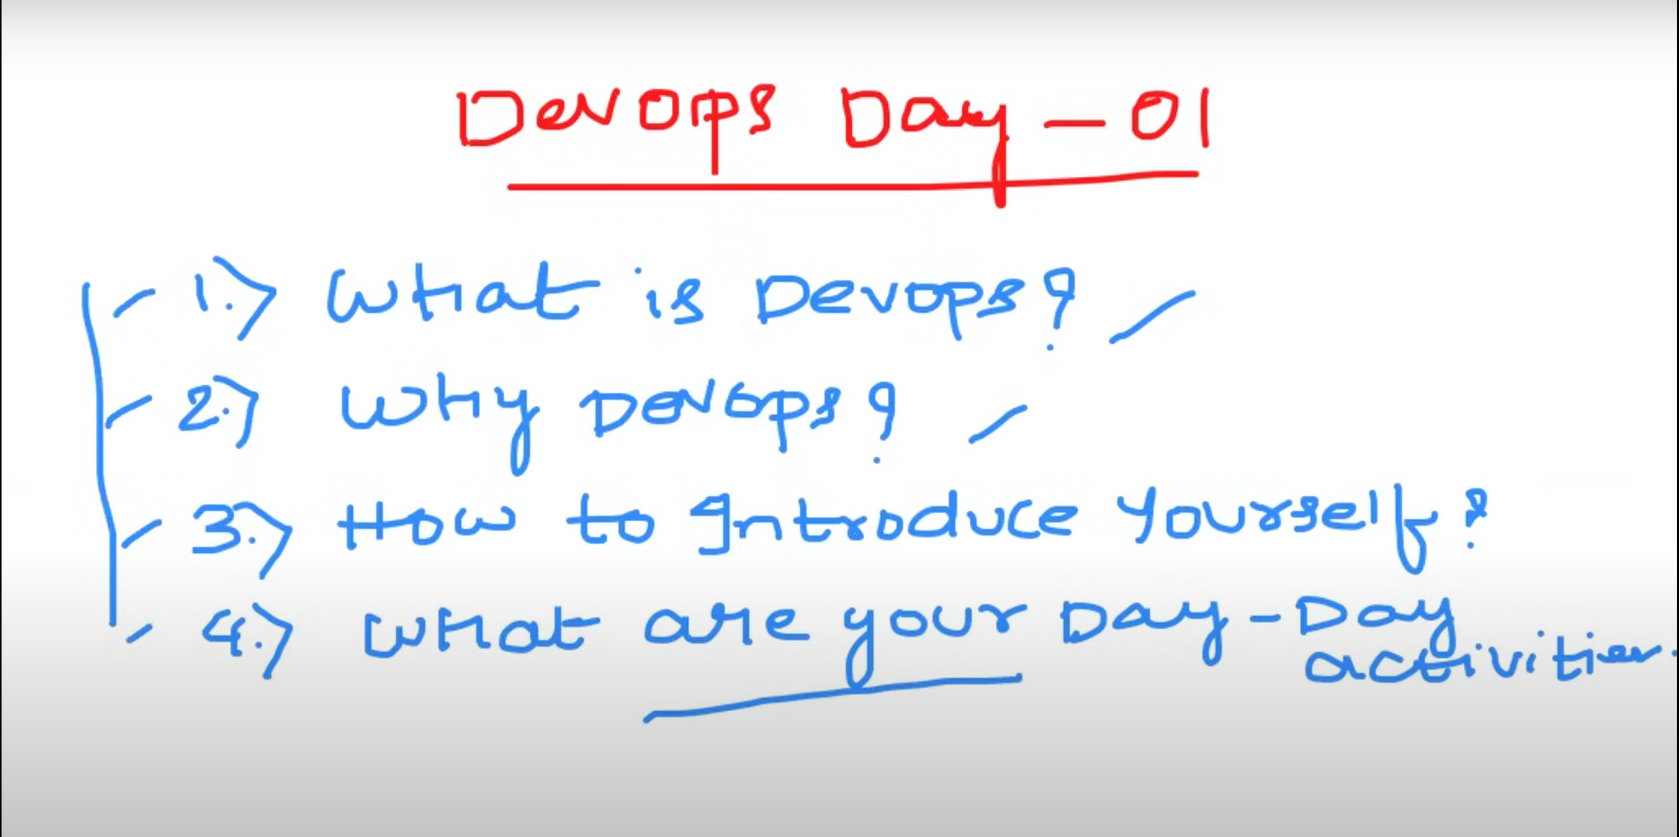 DevOps Day - 01
1.) What is Devops?
2.) Why Devops?
3.) How to Introduce Yourself?
4.) What are your Day-Day
activities.